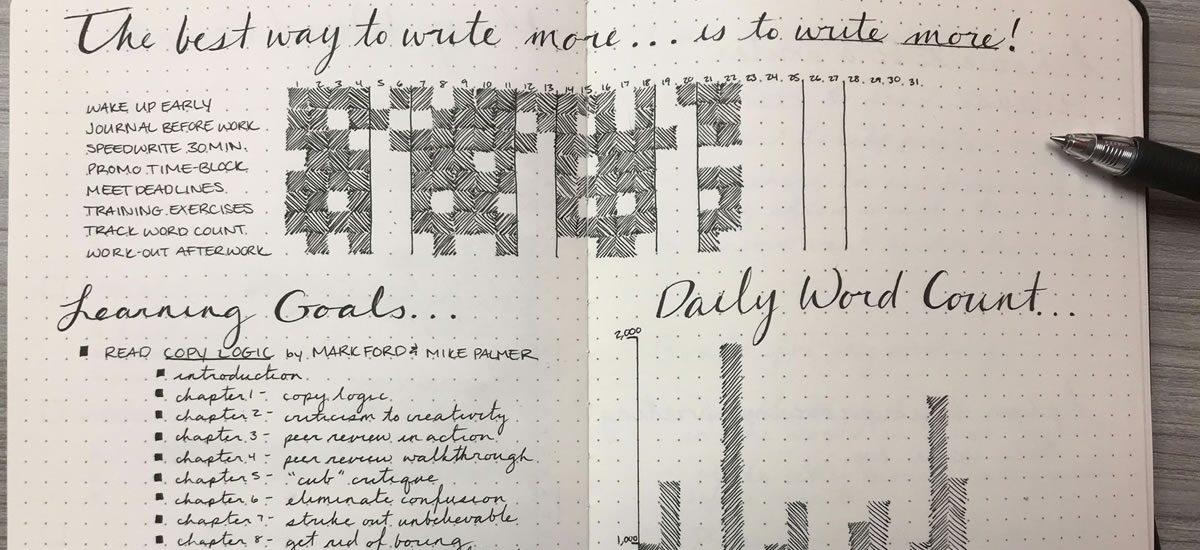 The best way to write more... is to write more!
1. 2. 3. 4. 5. 6. 7. 8. 9. 10. 11. 12. 13. 14. 15. 16. 17. 18. 19. 20. 21. 22. 23. 24. 25. 26. 27. 28. 29. 30. 31.
WAKE UP EARLY
JOURNAL BEFORE WORK.
SPEEDWRITE 30 MIN.
PROMO TIME-BLOCK
MEET DEADLINES.
TRAINING EXERCISES
TRACK WORD COUNT.
WORK-OUT AFTERWORK
Learning Goals...
READ COPY LOGIC by MARK FORD & MIKE PALMER
introduction
chapter 1 - copy logic.
chapter 2 - criticism to creativity
chapter 3 - peer review in action.
chapter 4 - peer review walkthrough.
chapter 5 - "cub" critique
chapter 6 - eliminate confusion
chapter 7 - strike out unbelievable.
chapter 8 - get rid of boring.
Daily Word Count...
2,000
1,000